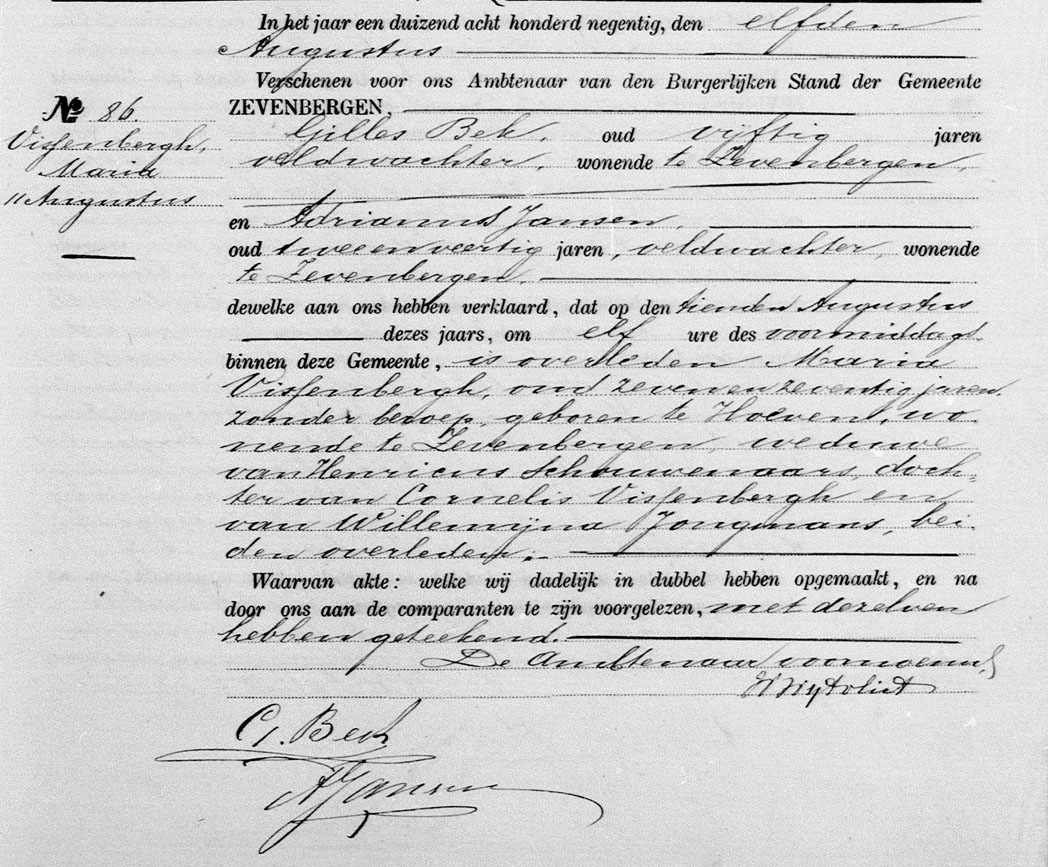 In het jaar een duizend acht honderd negentig, den elfden
Augustus
Verschenen voor ons Ambtenaar van den Burgerlijken Stand der Gemeente
ZEVENBERGEN,
№ 86
Vissenbergh,
Maria
11 Augustus
Gilles Bek, oud vijftig jaren
veldwachter, wonende te Zevenbergen,
en Adrianus Jansen,
oud tweeenveertig jaren, veldwachter, wonende
te Zevenbergen,
dewelke aan ons hebben verklaard, dat op den tienden Augustus
dezes jaars, om elf ure des voormiddags
binnen deze Gemeente, is overleden Maria
Vissenbergh, oud zevenenzeventig jaren,
zonder beroep, geboren te Hoeven, wo
nende te Zevenbergen, weduwe
van Henricus Schouwenaars, doch-
ter van Cornelis Vissenbergh en
van Willemijna Jongmans, bei
den overleden.
Waarvan akte: welke wij dadelijk in dubbel hebben opgemaakt, en na
door ons aan de comparanten te zijn voorgelezen, met dezelven
hebben geteekend.
De Ambtenaar voornoemd,
G. Bek
A Jansen